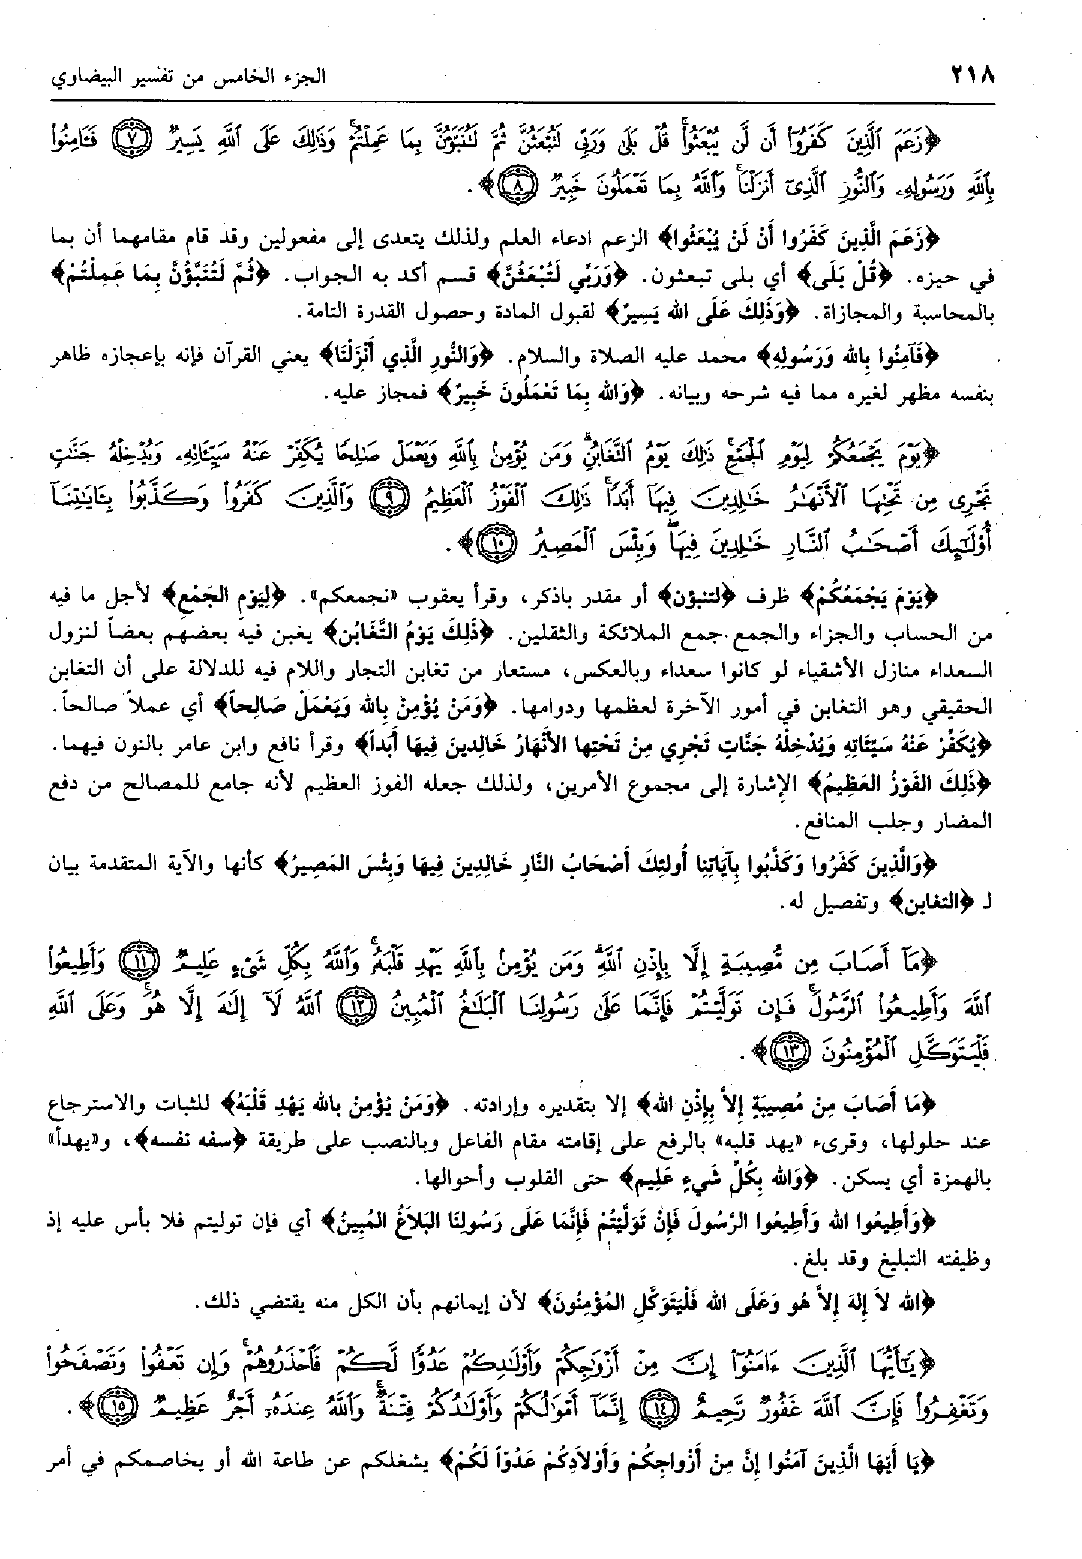 ٢١٨ الجزء الخامس من تفسير البيضاوي
﴿زَعَمَ ٱلَّذِينَ كَفَرُوٓا۟ أَن لَّن يُبْعَثُوا۟ ۚ قُلْ بَلَىٰ وَرَبِّى لَتُبْعَثُنَّ ثُمَّ لَتُنَبَّؤُنَّ بِمَا عَمِلْتُمْ ۚ وَذَٰلِكَ عَلَى ٱللَّهِ يَسِيرٌ ﴿٧﴾ فَـَٔامِنُوا۟
بِٱللَّهِ وَرَسُولِهِۦ وَٱلنُّورِ ٱلَّذِىٓ أَنزَلْنَا ۚ وَٱللَّهُ بِمَا تَعْمَلُونَ خَبِيرٌ ﴿٨﴾﴾.
﴿زَعَمَ الَّذِينَ كَفَرُوا أَنْ لَنْ يُبْعَثُوا﴾ الزعم ادعاء العلم ولذلك يتعدى إلى مفعولين وقد قام مقامهما أن بما
في حيزه. ﴿قُلْ بَلَى﴾ أي بلى تبعثون. ﴿وَرَبِّي لَتُبْعَثُنَّ﴾ قسم أكد به الجواب. ﴿ثُمَّ لَتُنَبَّؤُنَّ بِمَا عَمِلْتُمْ﴾
بالمحاسبة والمجازاة. ﴿وَذَلِكَ عَلَى الله يَسِيرٌ﴾ لقبول المادة وحصول القدرة التامة.
﴿فَآمِنُوا بِالله وَرَسُولِهِ﴾ محمد عليه الصلاة والسلام. ﴿وَالنُّورِ الَّذِي أَنْزَلْنَا﴾ يعني القرآن فإنه بإعجازه ظاهر
بنفسه مظهر لغيره مما فيه شرحه وبيانه. ﴿وَالله بِمَا تَعْمَلُونَ خَبِيرٌ﴾ فمجاز عليه.
﴿يَوْمَ يَجْمَعُكُمْ لِيَوْمِ ٱلْجَمْعِ ۖ ذَٰلِكَ يَوْمُ ٱلتَّغَابُنِ ۗ وَمَن يُؤْمِنۢ بِٱللَّهِ وَيَعْمَلْ صَـٰلِحًا يُكَفِّرْ عَنْهُ سَيِّـَٔاتِهِۦ وَيُدْخِلْهُ جَنَّـٰتٍ
تَجْرِى مِن تَحْتِهَا ٱلْأَنْهَـٰرُ خَـٰلِدِينَ فِيهَآ أَبَدًا ۚ ذَٰلِكَ ٱلْفَوْزُ ٱلْعَظِيمُ ﴿٩﴾ وَٱلَّذِينَ كَفَرُوا۟ وَكَذَّبُوا۟ بِـَٔايَـٰتِنَآ
أُو۟لَـٰٓئِكَ أَصْحَـٰبُ ٱلنَّارِ خَـٰلِدِينَ فِيهَا ۖ وَبِئْسَ ٱلْمَصِيرُ ﴿١٠﴾﴾.
﴿يَوْمَ يَجْمَعُكُمْ﴾ ظرف ﴿لتنبؤن﴾ أو مقدر باذكر، وقرأ يعقوب «نجمعكم». ﴿لِيَوْمِ الجَمْعِ﴾ لأجل ما فيه
من الحساب والجزاء والجمع جمع الملائكة والثقلين. ﴿ذَلِكَ يَوْمُ التَّغَابُنِ﴾ يغبن فيه بعضهم بعضاً لنزول
السعداء منازل الأشقياء لو كانوا سعداء وبالعكس، مستعار من تغابن التجار واللام فيه للدلالة على أن التغابن
الحقيقي وهو التغابن في أمور الآخرة لعظمها ودوامها. ﴿وَمَنْ يُؤْمِنْ بِالله وَيَعْمَلْ صَالِحاً﴾ أي عملاً صالحاً.
﴿يُكَفِّرْ عَنْهُ سَيِّئَاتِهِ وَيُدْخِلْهُ جَنَّاتٍ تَجْرِي مِنْ تَحْتِها الأَنْهَارُ خَالِدِينَ فِيهَا أَبَداً﴾ وقرأ نافع وابن عامر بالنون فيهما.
﴿ذَلِكَ الفَوْزُ العَظِيمُ﴾ الإشارة إلى مجموع الأمرين، ولذلك جعله الفوز العظيم لأنه جامع للمصالح من دفع
المضار وجلب المنافع.
﴿وَالَّذِينَ كَفَرُوا وَكَذَّبُوا بِآيَاتِنَا أُولئِكَ أَصْحَابُ النَّارِ خَالِدِينَ فِيهَا وَبِئْسَ المَصِيرُ﴾ كأنها والآية المتقدمة بيان
لـ ﴿التغابن﴾ وتفصيل له.
﴿مَآ أَصَابَ مِن مُّصِيبَةٍ إِلَّا بِإِذْنِ ٱللَّهِ ۗ وَمَن يُؤْمِنۢ بِٱللَّهِ يَهْدِ قَلْبَهُۥ ۚ وَٱللَّهُ بِكُلِّ شَىْءٍ عَلِيمٌ ﴿١١﴾ وَأَطِيعُوا۟
ٱللَّهَ وَأَطِيعُوا۟ ٱلرَّسُولَ ۚ فَإِن تَوَلَّيْتُمْ فَإِنَّمَا عَلَىٰ رَسُولِنَا ٱلْبَلَـٰغُ ٱلْمُبِينُ ﴿١٢﴾ ٱللَّهُ لَآ إِلَـٰهَ إِلَّا هُوَ ۚ وَعَلَى ٱللَّهِ
فَلْيَتَوَكَّلِ ٱلْمُؤْمِنُونَ ﴿١٣﴾﴾.
﴿مَا أَصَابَ مِنْ مُصِيبَةٍ إِلاَّ بِإِذْنِ الله﴾ إلا بتقديره وإرادته. ﴿وَمَنْ يُؤْمِنْ بالله يَهْدِ قَلْبَهُ﴾ للثبات والاسترجاع
عند حلولها، وقرىء «يهد قلبه» بالرفع على إقامته مقام الفاعل وبالنصب على طريقة ﴿سفه نفسه﴾، و«يهدأ»
بالهمزة أي يسكن. ﴿وَالله بِكُلِّ شَيءٍ عَلِيم﴾ حتى القلوب وأحوالها.
﴿وَأَطِيعُوا الله وَأَطِيعُوا الرَّسُولَ فَإِنْ تَوَلَّيْتُمْ فَإِنَّمَا عَلَى رَسُولِنَا البَلاَغُ المُبِينُ﴾ أي فإن توليتم فلا بأس عليه إذ
وظيفته التبليغ وقد بلغ.
﴿الله لاَ إِلهَ إِلاَّ هُو وَعَلَى الله فَلْيَتَوَكَّلِ المُؤْمِنُونَ﴾ لأن إيمانهم بأن الكل منه يقتضي ذلك.
﴿يَـٰٓأَيُّهَا ٱلَّذِينَ ءَامَنُوٓا۟ إِنَّ مِنْ أَزْوَٰجِكُمْ وَأَوْلَـٰدِكُمْ عَدُوًّا لَّكُمْ فَٱحْذَرُوهُمْ ۚ وَإِن تَعْفُوا۟ وَتَصْفَحُوا۟
وَتَغْفِرُوا۟ فَإِنَّ ٱللَّهَ غَفُورٌ رَّحِيمٌ ﴿١٤﴾ إِنَّمَآ أَمْوَٰلُكُمْ وَأَوْلَـٰدُكُمْ فِتْنَةٌ ۚ وَٱللَّهُ عِندَهُۥٓ أَجْرٌ عَظِيمٌ ﴿١٥﴾﴾.
﴿يَا أَيُّهَا الَّذِينَ آمَنُوا إِنَّ مِنْ أَزواجِكُمْ وَأَوْلاَدِكُمْ عَدُوّاً لَكُمْ﴾ يشغلكم عن طاعة الله أو يخاصمكم في أمر